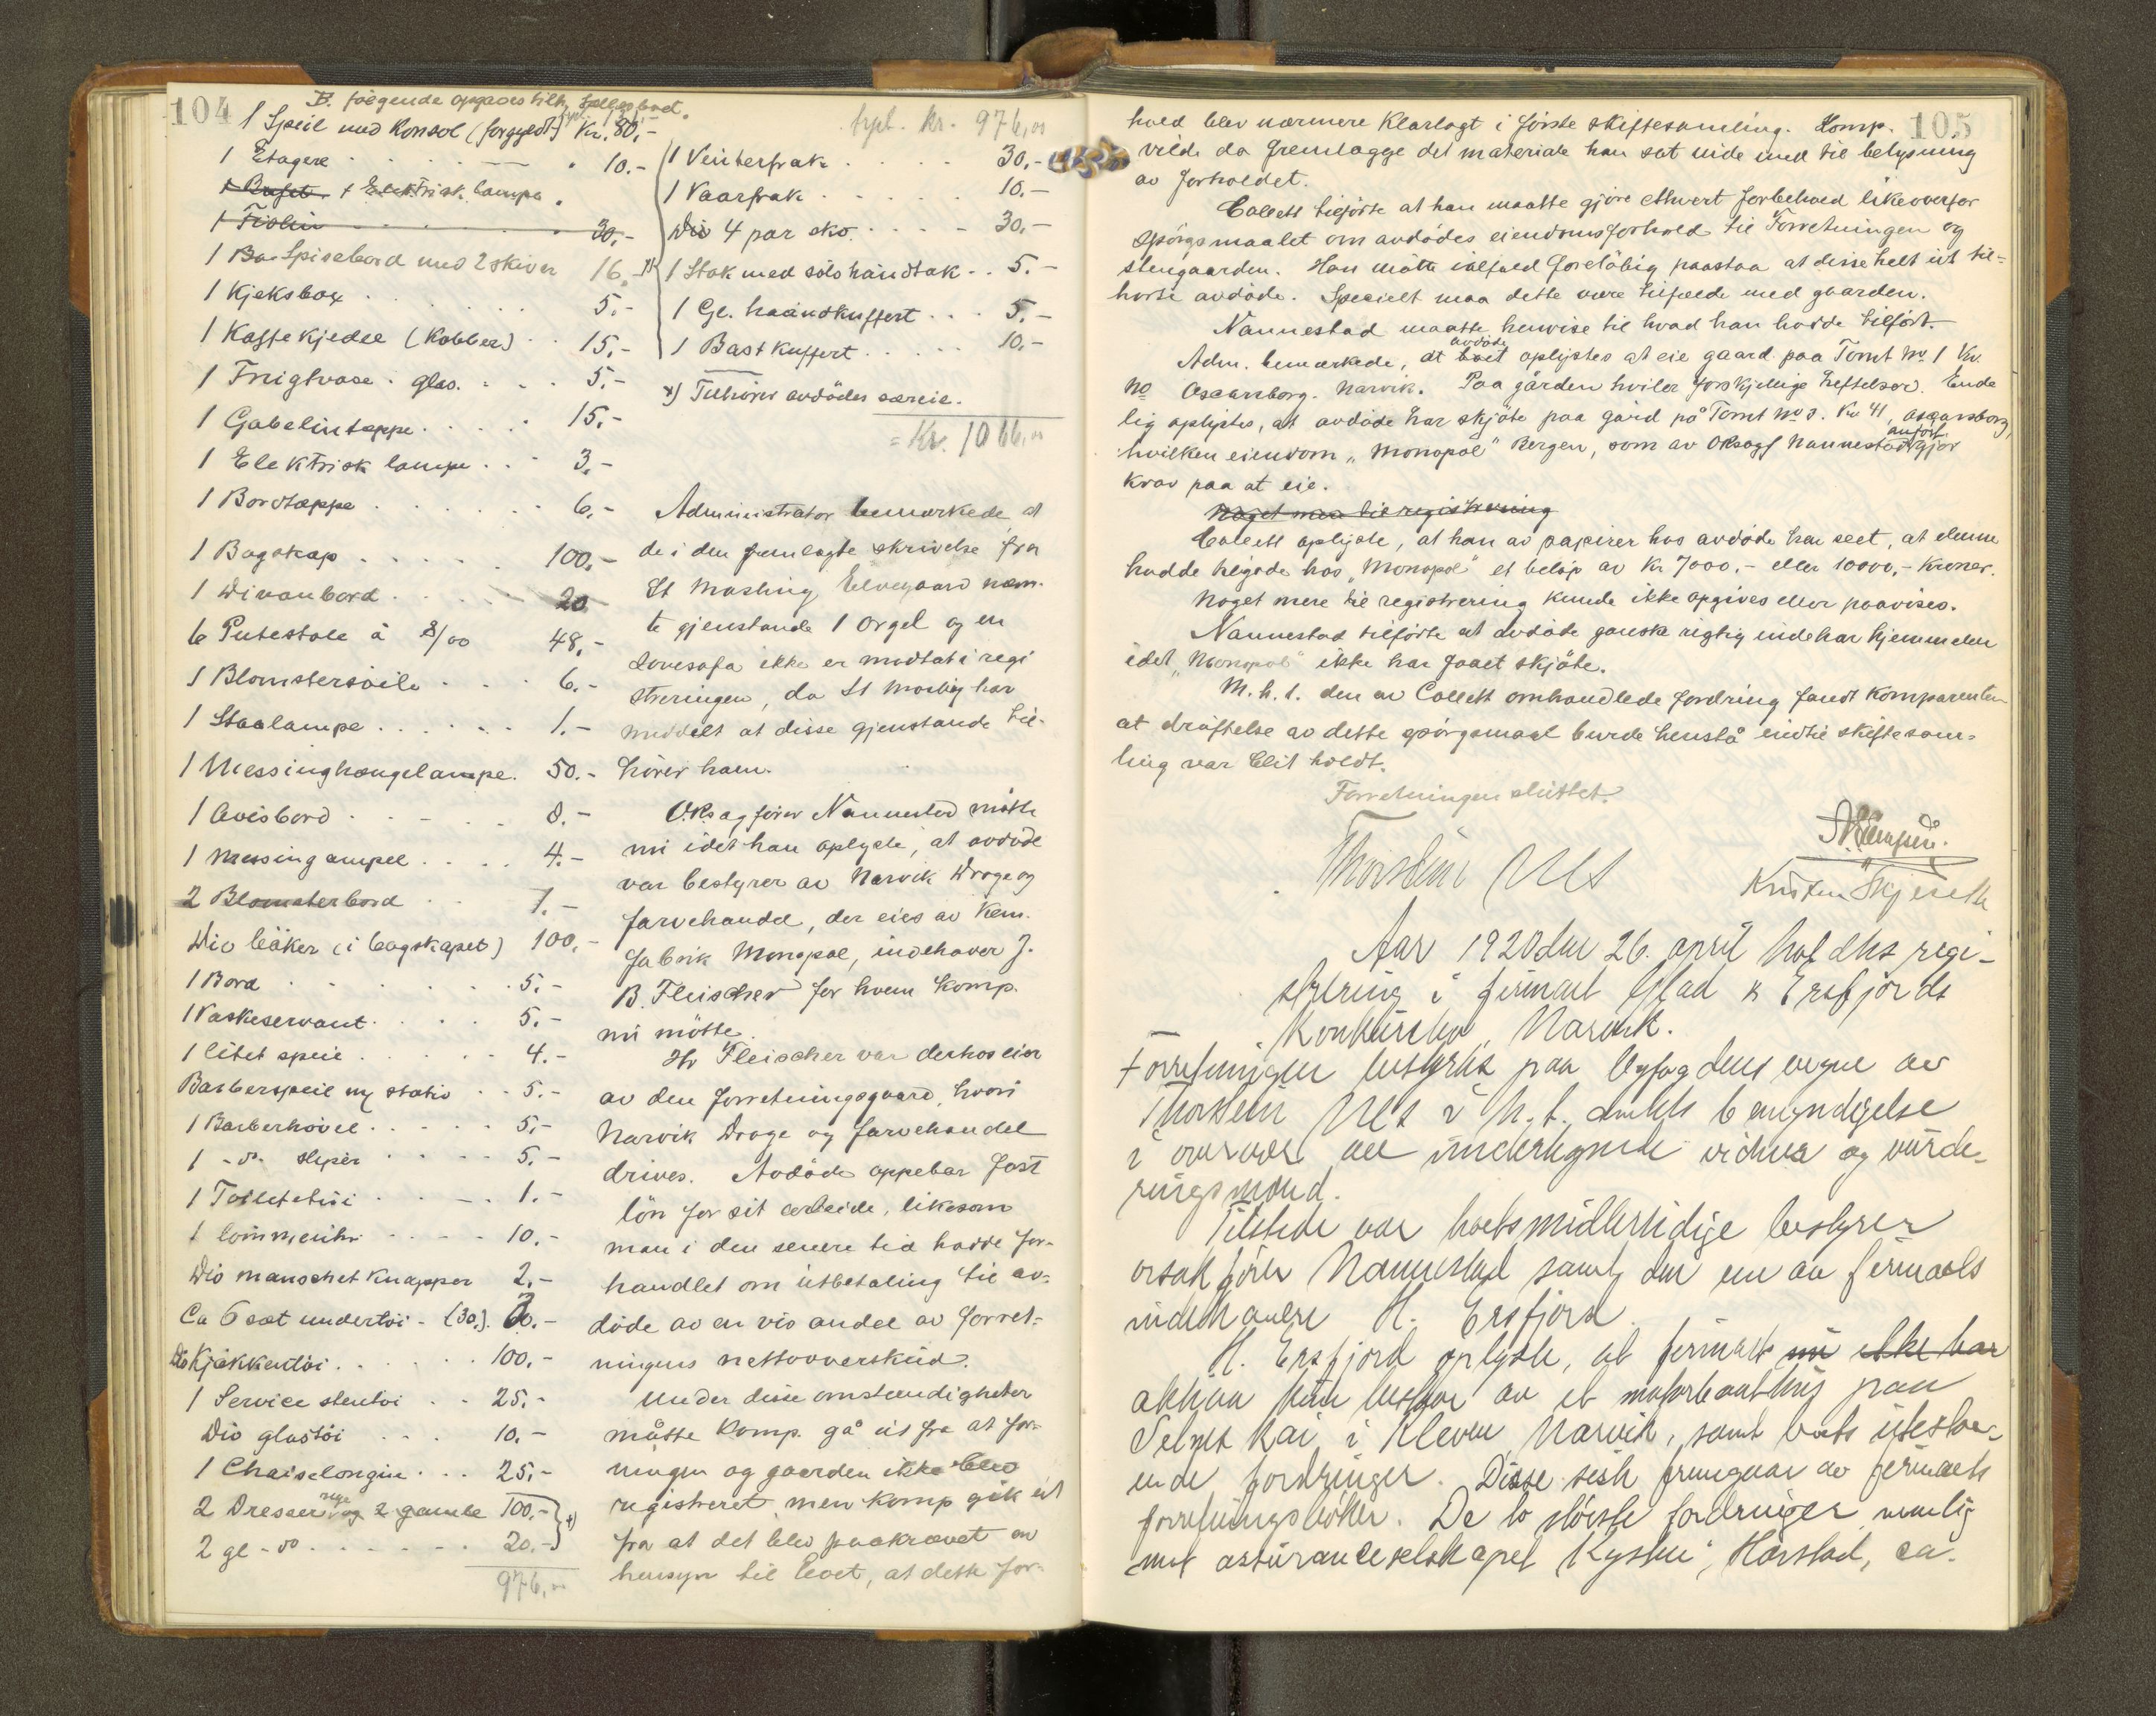 104
B. følgende opgaves tilh. fællesboet.
1 Speil med Konsol (forgyldt) Kr. 80,-
1 Etagere 10.-
1 Bufet 1 Elektrisk lampe
1 Fiolin 30,-
1 Spisebord med 2 skiver 16.-
1 Kjeksbox 5.-
1 Kaffekjedel (Kobber) 15,-
1 Frugtvase glas. 5.-
1 Gobelinteppe 15,-
1 Elektrisk lampe 3,-
1 Bordtæppe 6.-
1 Bogskap 100.-
1 Divanbord 20
6 Putestole à 8/00 48,-
1 Blomstersøile 6.-
1 Staalampe 1.-
1 Messinghængelampe. 50.-
1 Avisbord 8.-
1 Messingampel 4.-
2 Blomsterbord 7.-
Div bøker (i bogskapet) 100.-
1 Bord 5.-
1 Vaskeservant 5.-
1 litet speil 4.-
Barberspeil m/ stativ 5.-
1 Barberhøvel 5,-
1 -do- sliper 5.-
1 Toiletetui 1.-
1 lommeuhr 10.-
Div manschetknapper 2.-
Ca 6 sæt undertøi - (30,)
Div Kjøkkentøi 100.-
1 Service stentøi 25.-
Div glastøi 10.-
1 Chaiselongue 25,-
2 Dresser nye og 2 gamle 100,-
2 gl -do- 20.-
976,00
typt. kr. 976,00
1 Vinterfrak 30,-
1 Vaarfrak 10.-
Div 4 par sko 30,-
1 Stok med sølvhåndtak 5.-
1 Gl. haandkuffert 5.-
1 Bastkuffert 10.-
x) Tilhører avdødes særeie.
= Kr. 1066,00
Administrator bemerkede at
de i den fremlagte skrivelse fra
St Mosling Elvegaard næm-
te gjenstande 1 orgel og en
sovesofa ikke er modtat i regi
streringen, da St Mosling har
meddelt at disse gjenstande til-
hører ham.
O.R.sagfører Nannestad møtte
nu idet han oplyste, at avdøde
var bestyrer av Narvik Droge og
farvehandel, der eies av Kem.
fabrik Monopol, indehaver J.
B. Fleischer for hvem Komp.
nu møtte.
Hr Fleischer var derhos eier
av den forretningsgaard, hvori
Narvik Droge og farvehandel
drives. Avdøde oppebar fast
løn for sit arbeide, likesom
man i den senere tid hadde for-
handlet om utbetaling til av-
døde av en vis andel av forret-
ningens nettooverskud.
Under disse omstændigheter
måtte Komp. gå ut fra at for-
ningen og gaarden ikke blev
registreret men Komp gik ut
fra at det blev paakrævet av
hensyn til boet, at dette for-
105
hold blev nærmere klarlagt i første skiftesamling. Komp.
vilde da fremlægge det materiale han sat inde med til belysning
av forholdet.
Collett tilførte at han maatte gjøre ethvert forbehold likeoverfor
spørgsmaalet om avdødes eiendomsforhold til Forretningen og
stengaarden. Han måtte ialfald foreløbig paastaa at disse helt ut til-
hørte avdøde. Specielt maa dette være tilfælde med gaarden.
Nannestad maatte henvise til hvad han hadde tilført.
Adm. bemærkede, at avdøde boet oplystes at eie gaard paa Tomt No 1 Kv.
No Oscarsborg. Narvik. Paa gården hviler forskjellige heftelser. Ende
lig oplystes, at avdøde har skjøte paa gård på Tomt No 3. Kv 41, Oscarsborg,
hvilken eiendom "Monopol" Bergen, som av ORsagf Nannestad anført gjør
krav paa at eie.
Noget mere til registrering
Collett oplyste, at han av papirer hos avdøde har seet, at denne
hadde tilgode hos "Monopol" et beløp av Kr 7000.- eller 10000,- Kroner.
Noget mere til registrering kunde ikke opgives eller paavises.
Nannestad tilførte at avdøde ganske rigtig indehar hjemmelen
idet "Monopol" ikke har faaet skjøte.
M.h.t. den av Collett omhandlede fordring fandt Komparenten
at drøftelse av dette spørgsmaal burde henstå indtil skiftesam-
ling var blit holdt.
Forretningen sluttet.
Thorstein Uls
Kristen Skjeseth
Aar 1920 den 26. april holdtes regi-
strering i firmaet Glad & Ersfjords
Konkursbo, Narvik.
Forretningen bestyrtes paa byfogdens vegne av
Thorstein Uls i h.t. amtets bemyndigelse
i overvær av undertegnede vidner og vurde-
ringsmænd.
Tilstede var boets midlertidige bestyrer
orsakfører Nannestad samt den ene av firmaets
indehavere H. Ersfjord.
H. Ersfjord oplyste, at firmaet nu ikke har
aktiva kun bestaar av et motorbaathus paa
kai i Kleven Narvik, samt boets utestaa-
ende fordringer. Disse sidste fremgaar av firmaets
forretningsbøker. De to største fordringer nemlig
mot assuranceselskapet "Kysten", Harstad, ca.